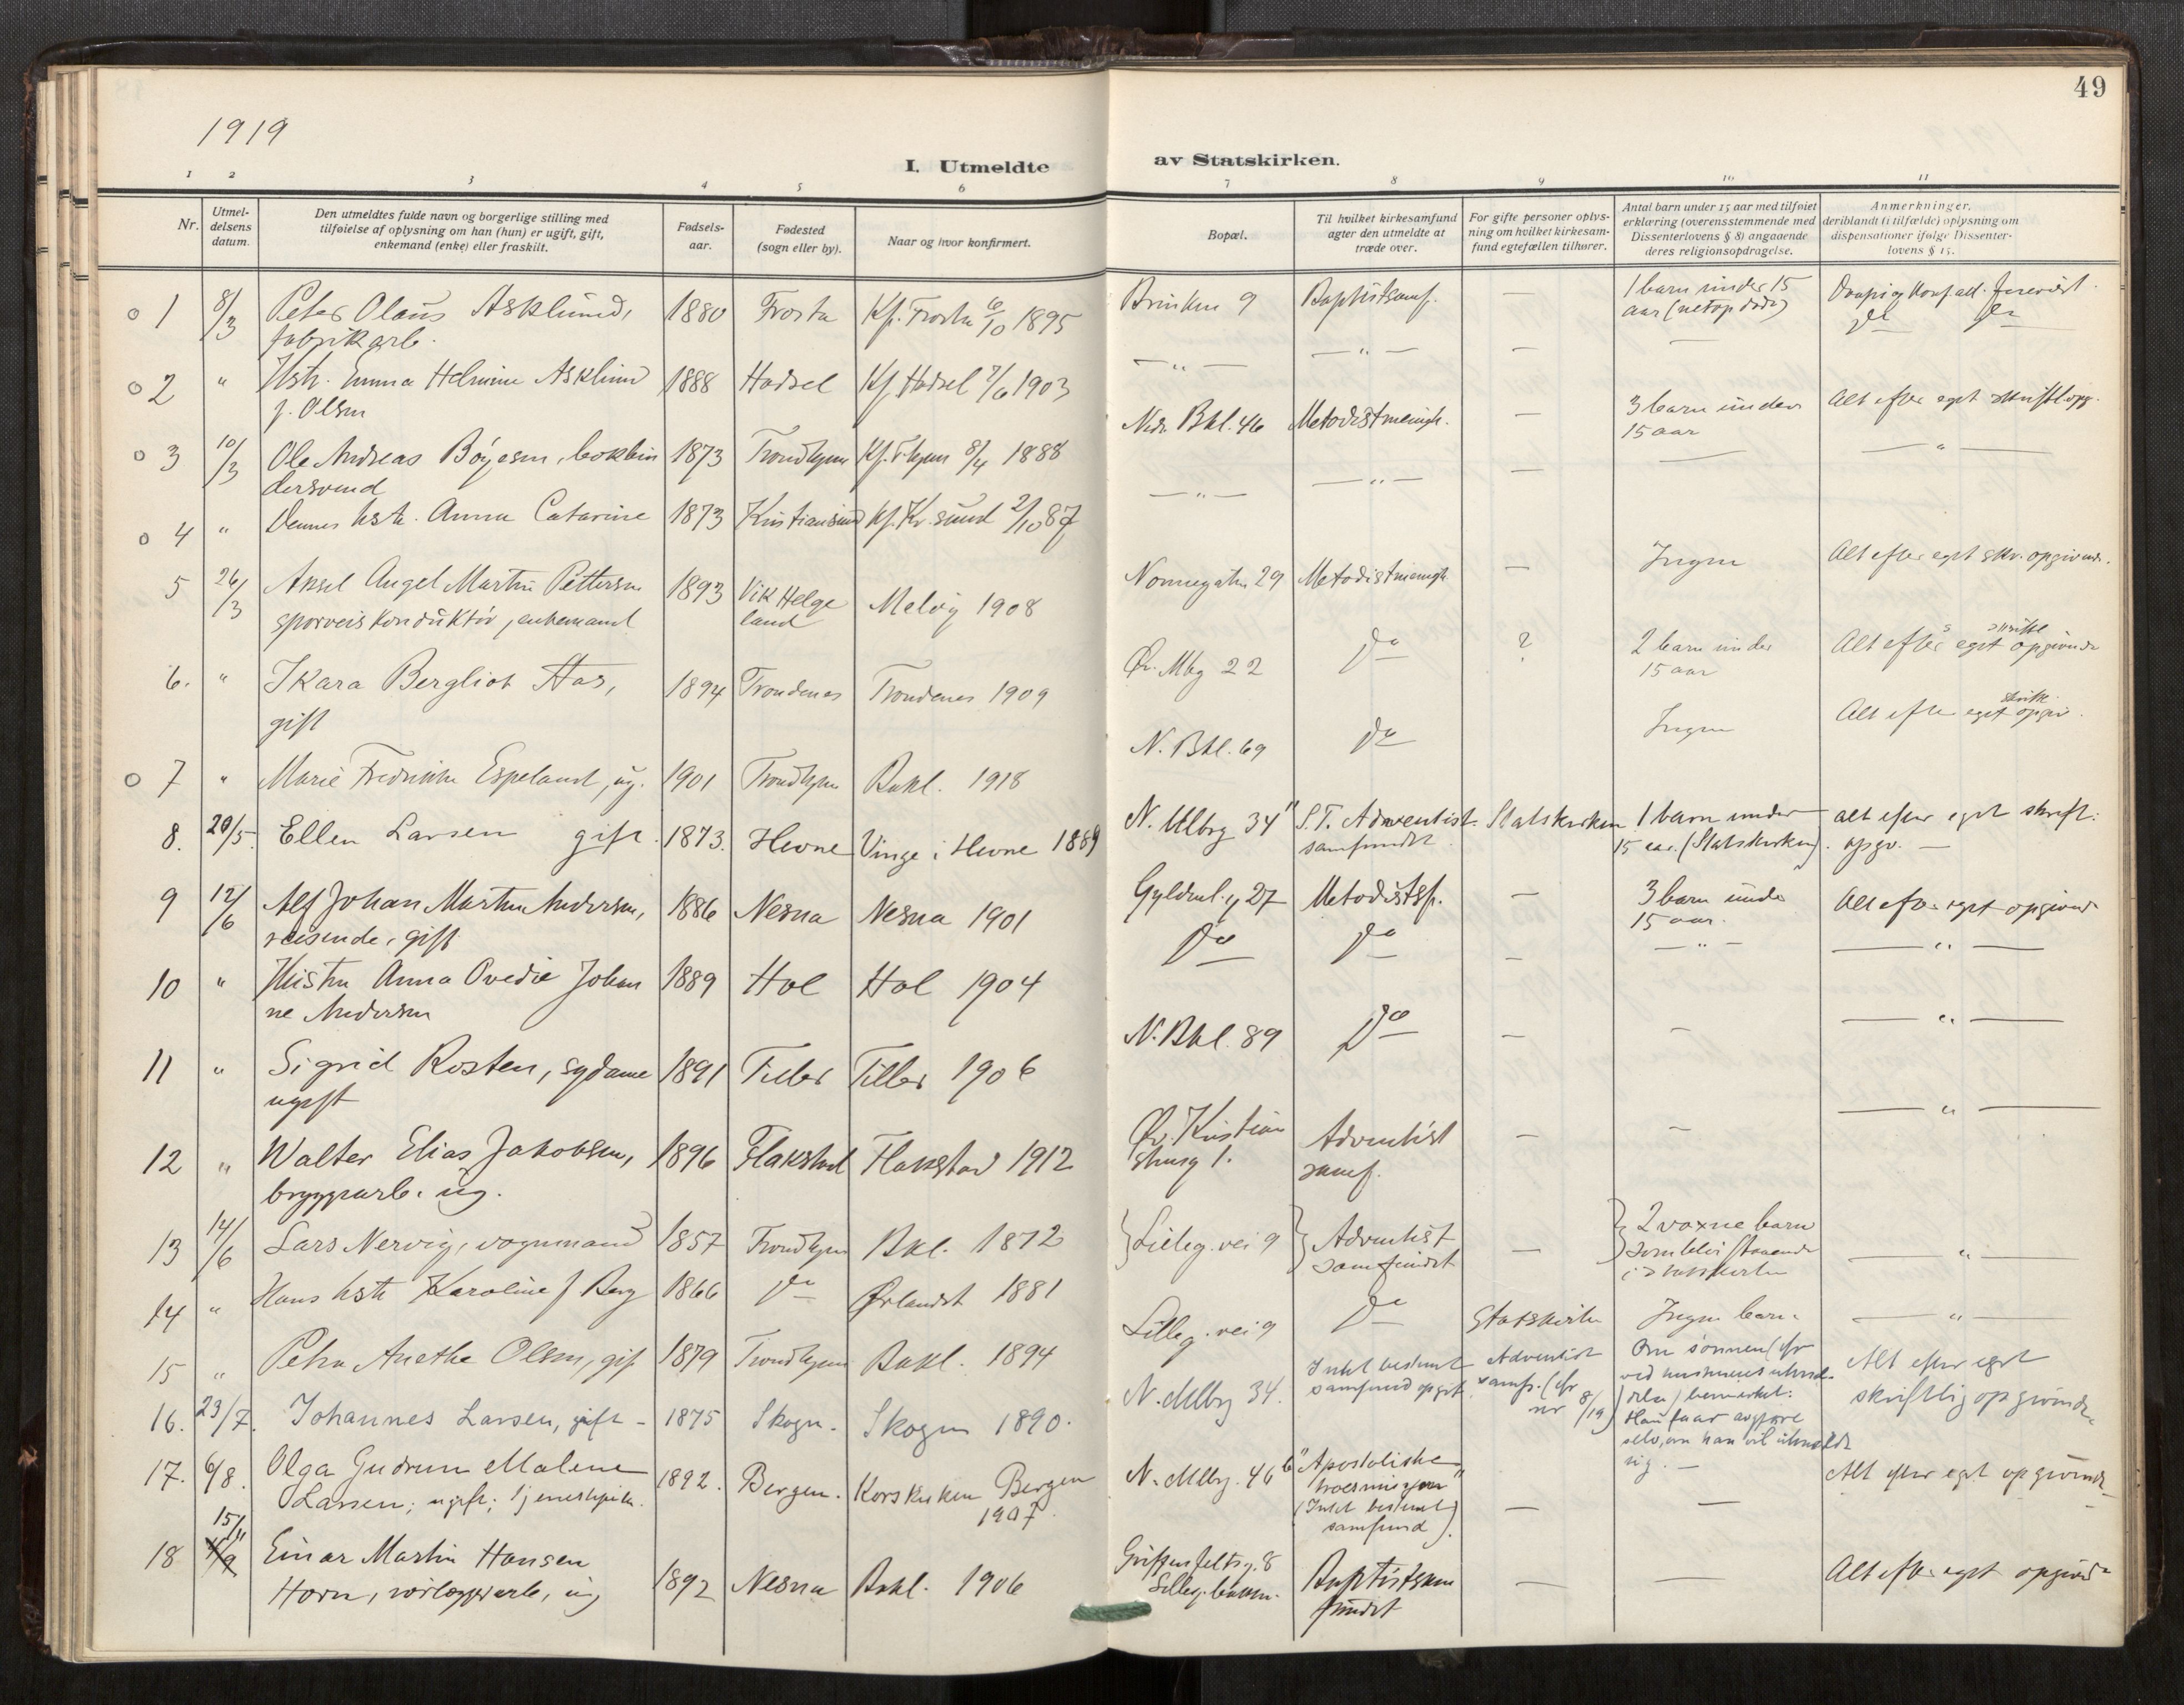 49
1919
I. Utmeldte av Statskirken.
1 2 3 4 5 6 7 8 9 10 11
Nr.
Utmel-
delsens
datum.
Den utmeldtes fulde navn og borgerlige stilling med
tilføielse af oplysning om han (hun) er ugift, gift,
enkemand (enke) eller fraskilt.
Fødsels-
aar.
Fødested
(sogn eller by).
Naar og hvor konfirmert.
Bopæl.
Til hvilket kirkesamfund
agter den utmeldte at
træde over.
For gifte personer oplys-
ning om hvilket kirkesam-
fund egtefællen tilhører.
Antal barn under 15 aar med tilføiet
erklæring (overensstemmende med
Dissenterlovens § 8) angaaende
deres religionsopdragelse.
Anmerkninger,
deriblandt (i tilfælde) oplysning om
dispensationer ifølge Dissenter-
lovens § 15.
o 1 8/3 Peter Olaus Asklund, 1880 Frosta Kf. Frosta 6/10 1895 Brinken 9 Baptistsamf. — 1 barn under 15
fabrikarb. aar (netop døde)
o 2 " Hstr. Emma Helmine Asklund 1888 Hadsel Kf. Hadsel 7/6 1903 — " — — " — — —
f. Olsen
o 3 10/3 Ole Andreas Böyesen, bokbin 1873 Trondhjem Kf. T.hjem 8/4 1888 Ndr. Bkl. 46 Metodistmenigh. — 3 barn under Alt efter eget skriftl. opg.
dersvend 15 aar
o 4 " Dennes hstr. Anna Catarine 1873 Kristiansund Kf. Kr.sund 2/10 87 — " — — " — — — — " —
5 26/3 Aksel Angel Martin Pettersen 1893 Vik Helge Melvig 1908 Nonnegaten 29 Metodistmenigh — Ingen Alt efter eget skr. opgivende.
sporveiskonduktör, enkemand land
6. " Ikara Bergliot Aas, 1894 Trondenes Trondenes 1909 Øv. Mbg 22 do ? 2 barn under Alt efter eget skriftl opgivende
gift 15 aar
o 7 " Marie Fredrikke Espeland, ug. 1901 Trondhjem Bakl. 1918 N. Bkl. 69 do Ingen Alt efter eget skriftl. opgiv.
8. 20/5. Ellen Larsen gift. 1873. Hevne Vinge i Hevne 1889 N. Mlbrg 34 S. T. Adventist- Statskirken 1 barn under alt efter eget skriftl.
samfundet 15 aar. (Statskirken). opgv. —
9 12/6 Alf Johan Martin Andersen, 1886 Nesna Nesna 1901 Gyldenl. g 27 Metodistsf. — 3 barn under Alt efter eget opgivende
reisende, gift 15 aar.
10 " Hustru Anna Ovedie Johan 1889 Hol Hol 1904 do do — — " — — " —
ne Andersen
11 " Sigrid Rosten, sydame 1891 Tiller Tiller 1906 N. Bkl. 89 do — — — " —
ugift
12 " Walter Elias Jakobsen, 1896 Flakstad Flakstad 1912 Øv. Kristian Adventist — — — " —
bryggearb. ug. stensg 1. samf.
13 14/6 Lars Nervig, vognmand 1857 Trondhjem Bkl. 1872 Lilleg. vei 9 Adventist — 2 voxne barn — " —
samfundet som blir staaende
i statskirken
14 " Hans hstr Karoline f Berg 1866 do Ørlandet 1881
15 " Petra Anethe Olsen, gift 1879 Trondhjem Bakl. 1894 Lilleg. vei 9 do Statskirken Ingen barn — " —
16. 23/7. Johannes Larsen, gift – 1875 Skogn. Skogn 1890. N. Mlbrg 34. Intet bestemt Adventist Om sönnen (efr Alt efter eget
samfund opgit. samf. (efr ved hustruens utmel- skriftlig opgivende
nr 8/19) delse) bemerket:
Han faar avgjøre
selv, om han vil utmelde
sig. —
17. 6/8. Olga Gudrun Malene 1892. Bergen. Korskirken Bergen N. Mlbrg. 46 b "Apostoliske — — Alt efter eget opgivende
Larsen; ugift; tjenestepike. 1907. trosmission"
(Intet bestemt
samfund).
15/11
18 Einar Martin Hansen Griffenfeltsg. 8
Horn, ug 1892 Nesna Bakl. 1906 Baptistsam — — Alt efter eget opgivende
fundet